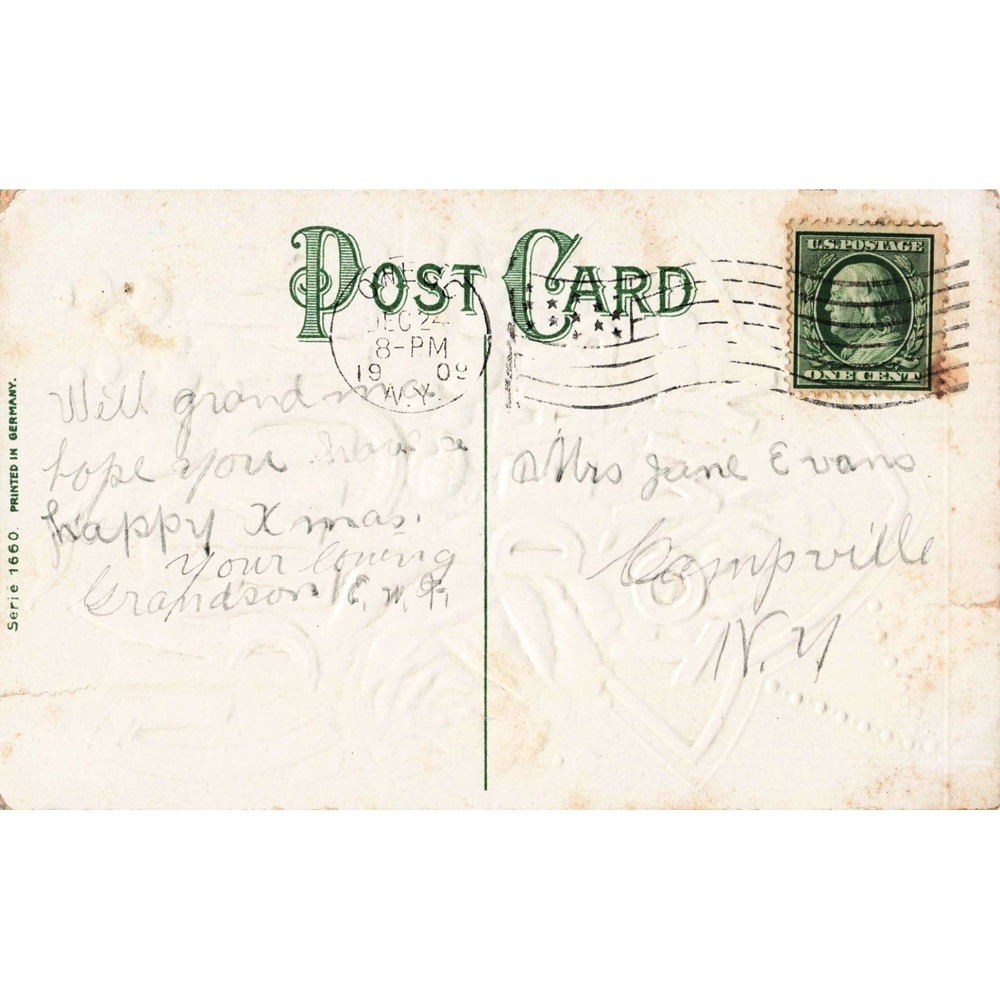 POST CARD
DEC 24
8-PM
1909
N.Y.
U.S. POSTAGE
ONE CENT
Serie 1660. PRINTED IN GERMANY.
Well grand ma
hope you have a
happy Xmas.
your loving
Grandson E. W.
Mrs Jane Evans
Campville
N. Y